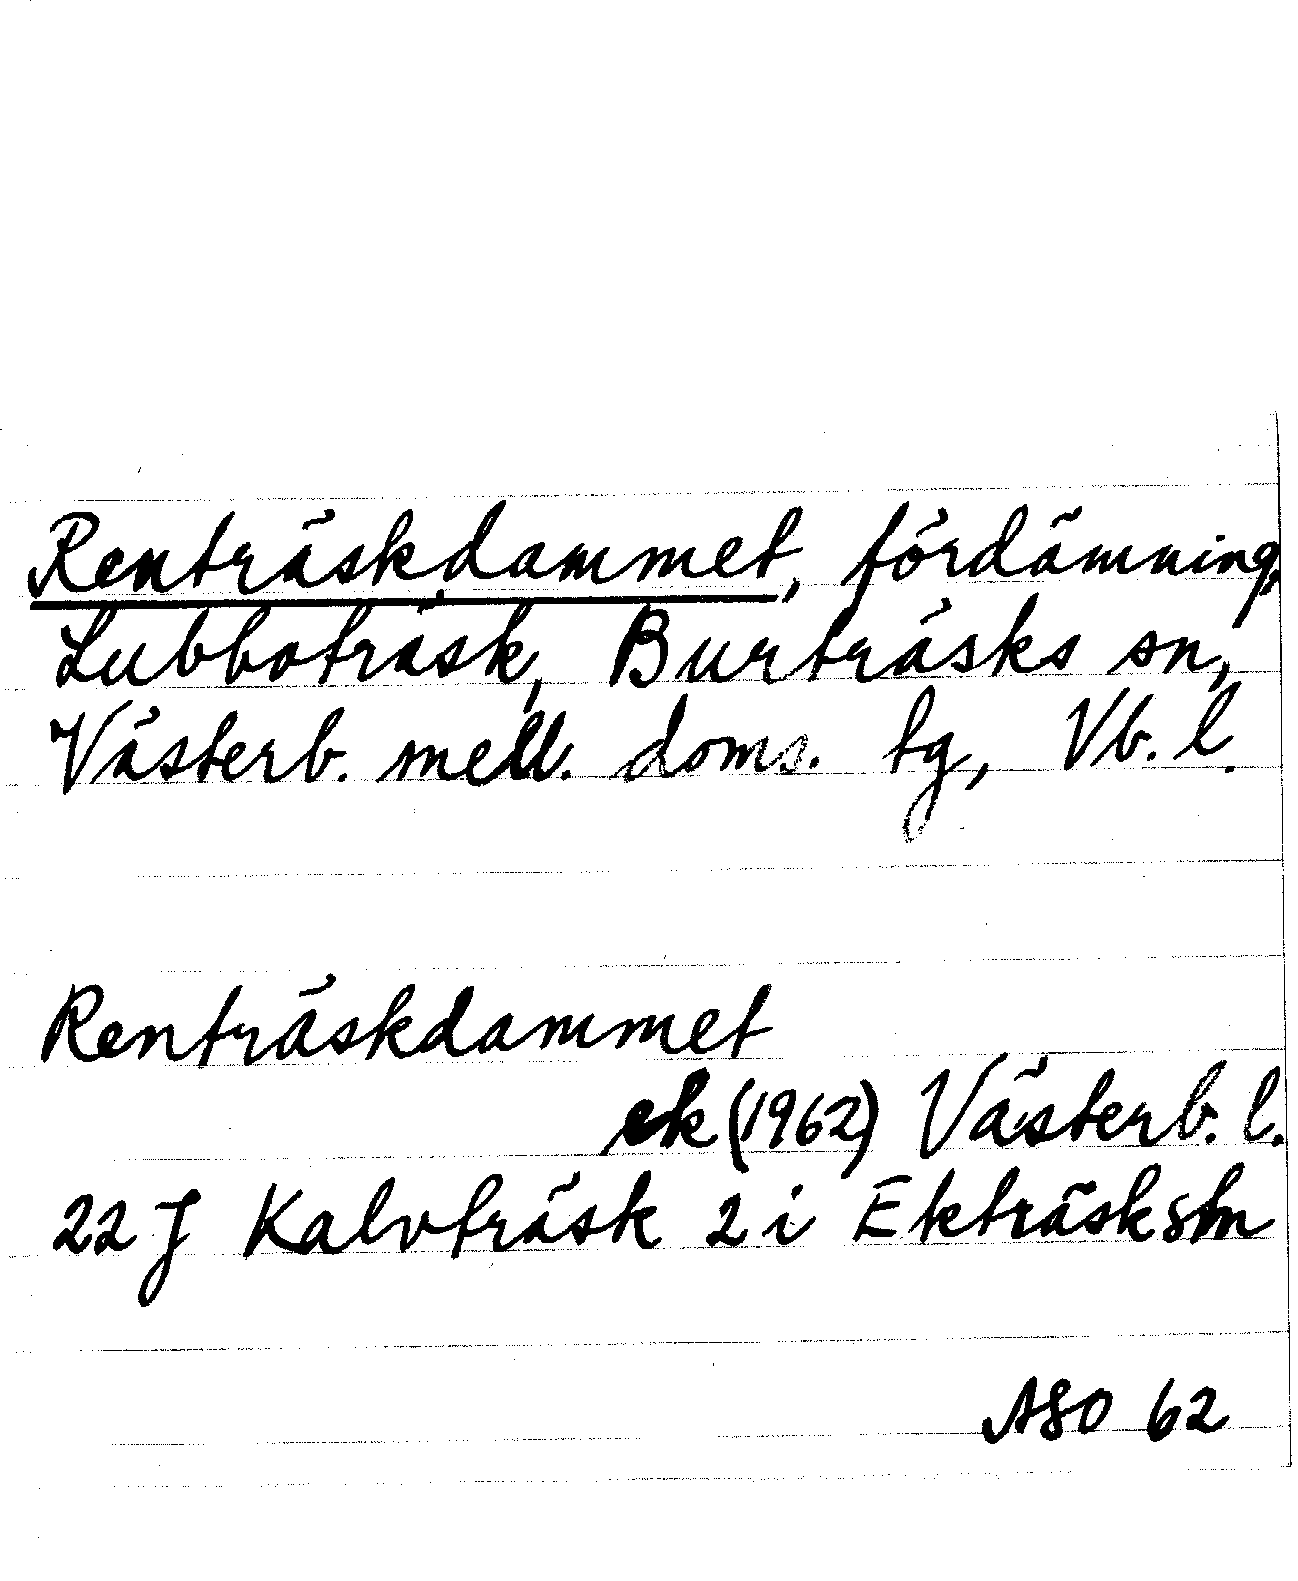 Renträskdammet, fördämning,
Lubboträsk, Burträsks sn,
Västerb. mell. doms. tg, Vb. l.
Renträskdammet
ek (1962) Västerb. l.
22 J Kalvträsk 2 i Ekträsk
ASO 62